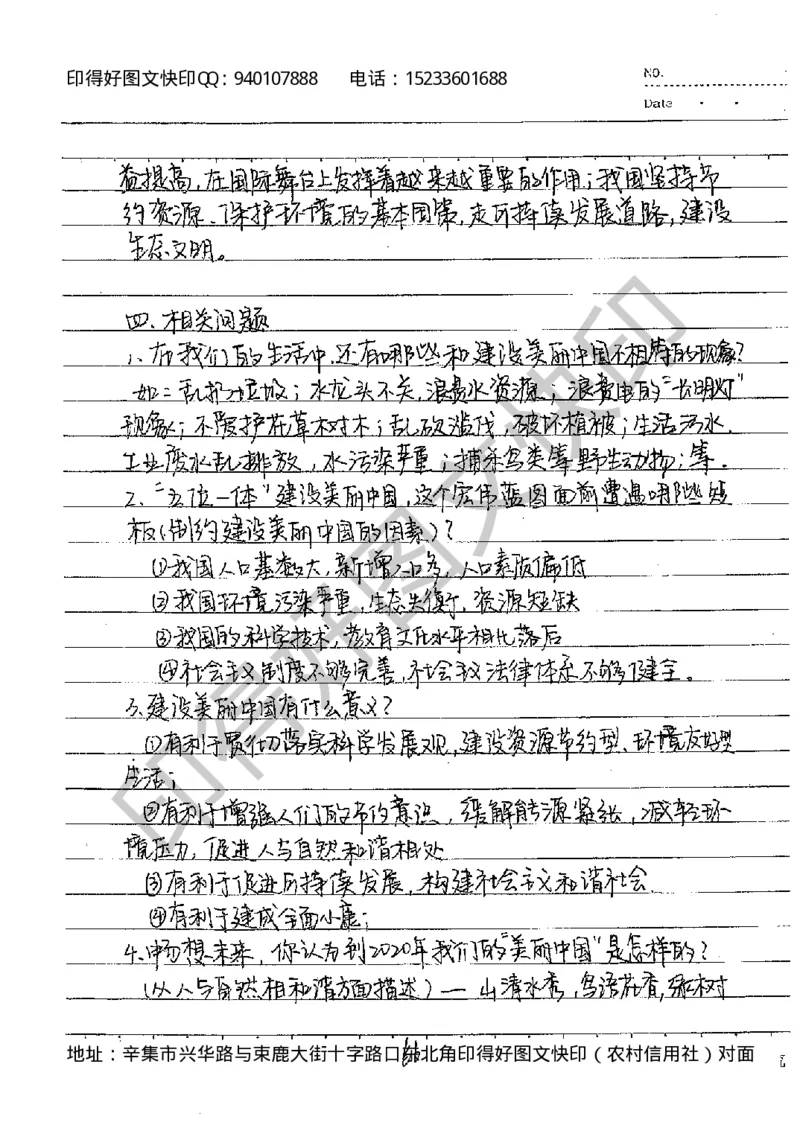 印得好图文快印QQ：940107888 电话：15233601688
NO.
Date
益提高，在国际舞台上发挥着越来越重要的作用；我国坚持节
约资源、保护环境的基本国策，走可持续发展道路，建设
生态文明。
四、相关问题
1、在我们的生活中，还有哪些和建设美丽中国不相符的现象？
如：乱扔垃圾；水龙头不关，浪费水资源；浪费电的“长明灯”
现象；不爱护花草树木；乱砍滥伐，破坏植被；生活污水，
工业废水乱排放，水污染严重；捕杀鸟类等野生动物；等。
2、“五位一体”建设美丽中国，这个宏伟蓝图面前遭遇哪些短
板（制约建设美丽中国的因素）？
①我国人口基数大，新增人口多，人口素质偏低
②我国环境污染严重，生态失衡，资源短缺
③我国的科学技术，教育文化水平相比落后
④社会主义制度不够完善，社会主义法律体系不够健全。
3、建设美丽中国有什么意义？
①有利于贯彻落实科学发展观，建设资源节约型、环境友好型
生活；
②有利于增强人们的节约意识，缓解能源紧张，减轻环
境压力，促进人与自然和谐相处
③有利于促进可持续发展，构建社会主义和谐社会
④有利于建成全面小康；
4、畅想未来，你认为到2020年我们的“美丽中国”是怎样的？
（从人与自然相和谐方面描述）— 山清水秀，鸟语花香，绿树
地址：辛集市兴华路与束鹿大街十字路口西北角印得好图文快印（农村信用社）对面
印得好图文快印